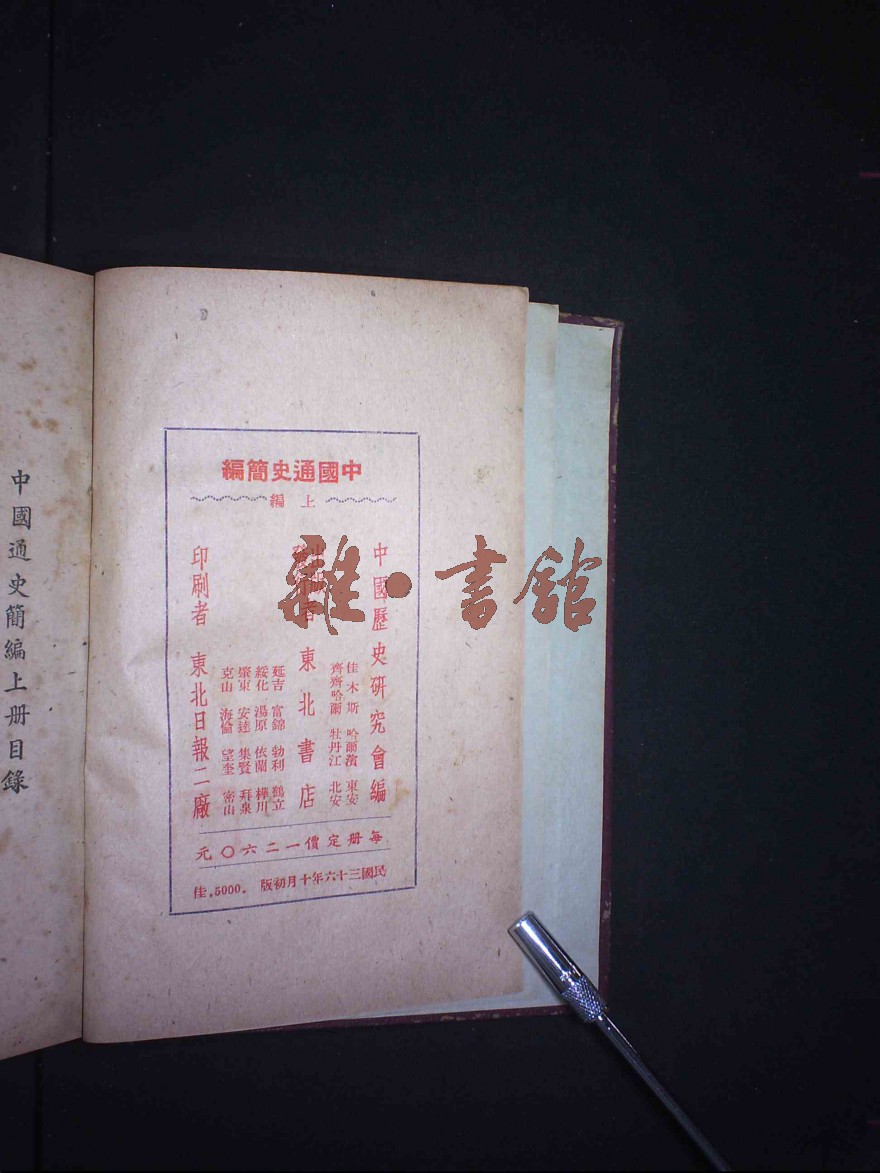 中國通史簡編
上編
中國歷史硏究會編
佳木斯 哈爾濱 東安
齊齊哈爾 牡丹江 北安
東北書店
延吉 富錦 勃利 鶴立
綏化 湯原 依蘭 樺川
肇東 安達 集賢 拜泉
克山 海倫 望奎 密山
印刷者 東北日報二廠
每册定價一二六〇元
民國三十六年十月初版.5000.佳
中國通史簡編上册目錄
雜·書館